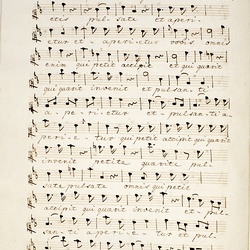 etis pul- sate et aperi-
etur et a- perietur vobis omnis
enim qui petit accipit et qui querit
qui querit invenit et pulsan- ti
a- pe- ri- etur et pulsan-ti a-
peri- e- tur qui petit accipit qui querit
invenit petite querite pul-
sate pulsate omnis qui petit
accipit qui querit invenit et pul-
san- ti aperi- e- tur et pul-